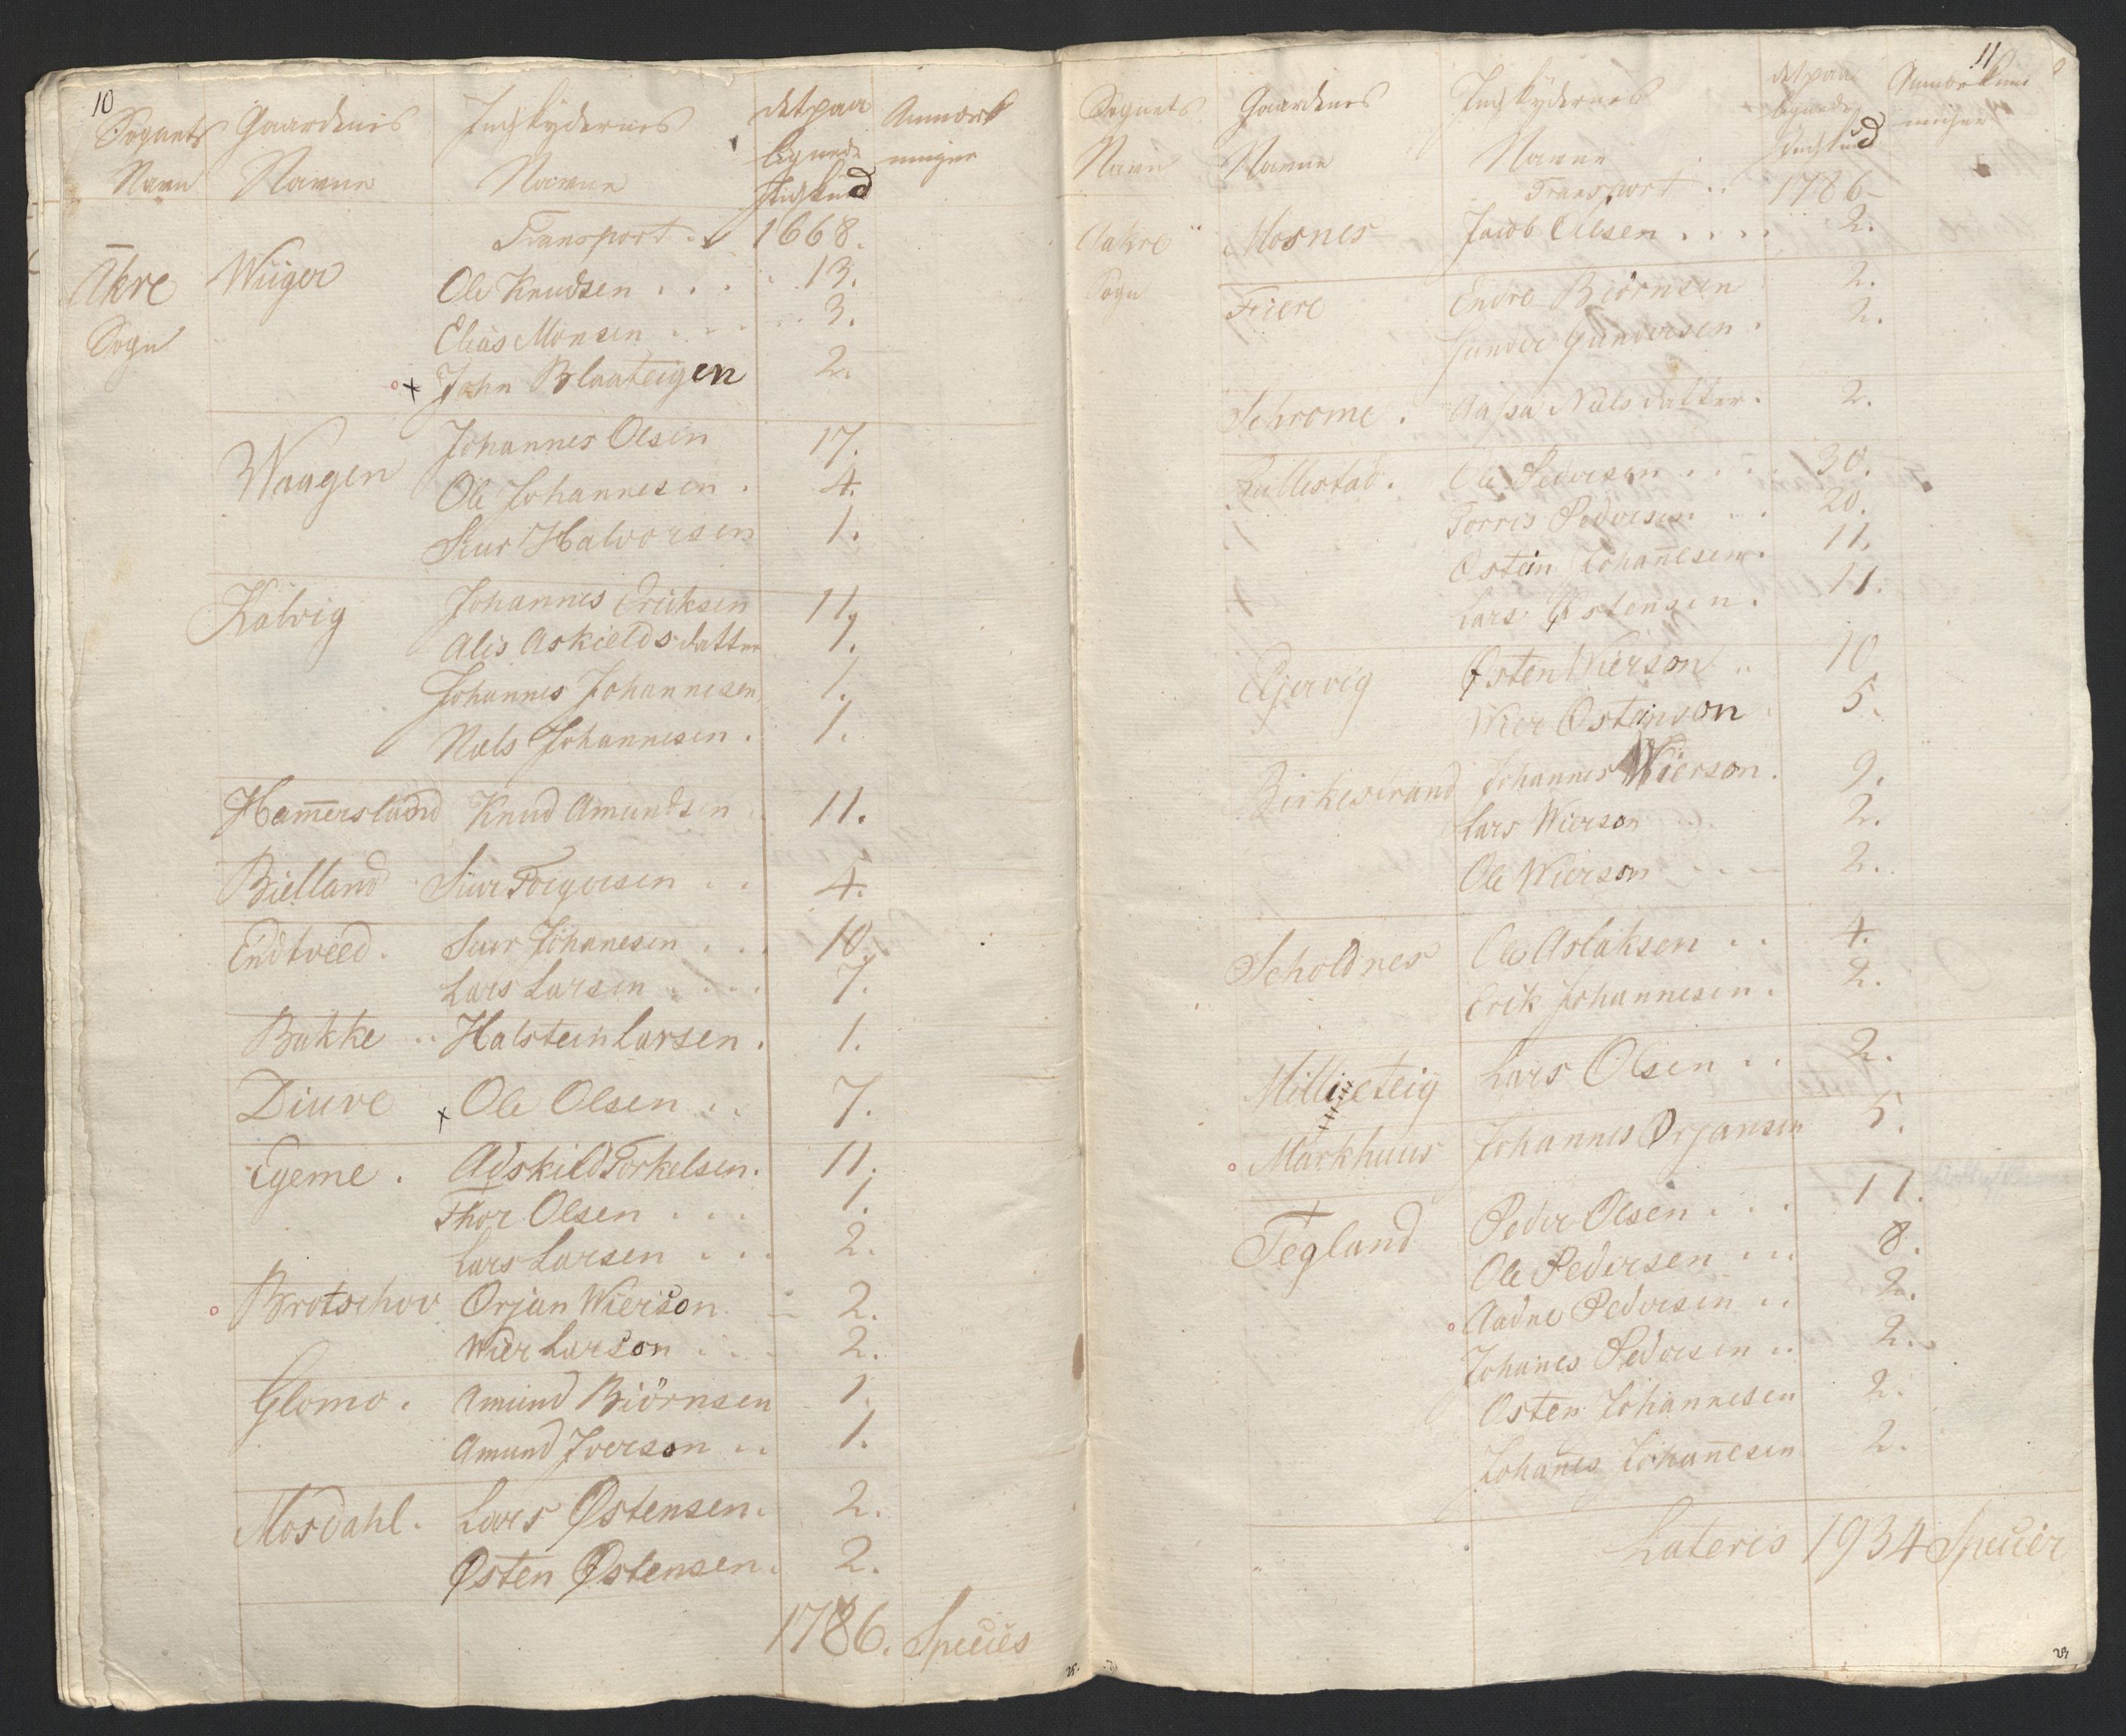 10
Sognets Gaardenes Indskydernes det paa Anmærk
Navn Navne Navne lignede ninger
Indskud
Transport .. 1668.
Akre Wiiger Ole Knudsen . . . . 13.
Sogn Elias Monsen . . . . 3.
o + John Blaateigen 2.
Waagen Johannes Olsen 17.
Ole Johannesen . 4.
Siur Halvorsen 1.
Kalvig Johannes Eriksen 11.
Alis Askieldsdatter 1.
Johannes Johannesen 1.
Nels Johannesen . 1.
Ham̅ersland Knud Amundsen 11.
Bielland Siur Torgersen . . 4.
Endtveed . Siur Johanesen . . . 10.
Lars Larsen . . . . 7.
Bakke .. Halstein Larsen . 1.
Diuve x Ole Olsen .. 7.
Egeme . Adskild Torkelsen . 11.
Thor Olsen . . . 1.
Lars Larsen . . . 2.
o Brotschov Orjan Wierson 2.
Wier Larson . . . 2.
Glomo . Amund Biörnsen 1.
Amund Iverson .. 1.
Mosdahl . Lars Østensen . 2.
Østen Østensen . 2.
1786. Species
11
Sognets Gaardenes Indskydernes det paa Anmærk
Navn Navne Navne lignede ninger
Indskud
Transport .. 1786
Aakre Mosnes Jacob Olsen . . . . 2.
Sogn Fiere Endre Biörnsen 2.
Gunder Gundersen . 2.
Schrome . Aassa Nilsdatter . 2.
Rullestad . Ole Pedersen . . . . 30.
Torris Pedersen . . . 20.
Østein Johan̅esen . 11.
Lars Østensen . 11.
Ejervig Østen Wierson .. 10
Wier Osteinson 5.
Birkestrand Johannes Wierson . 9.
Lars Wierson 2.
Ole Wierson 2.
Scholdnes Ole Aslaksen .. 4.
Erik Johannesen . 2.
Millieteig Lars Olsen .. 2.
o Markhuus Johannes Orjansen 5.
Tegland Peder Olsen . . . 11.
Ole Pedersen . . . 8.
o Aadne Pedersen .. 2.
Johanes Pedersen .. 2.
Osten Johannesen 2.
Johan̅es Johan̅esen 2.
Lateris 1934 Specier